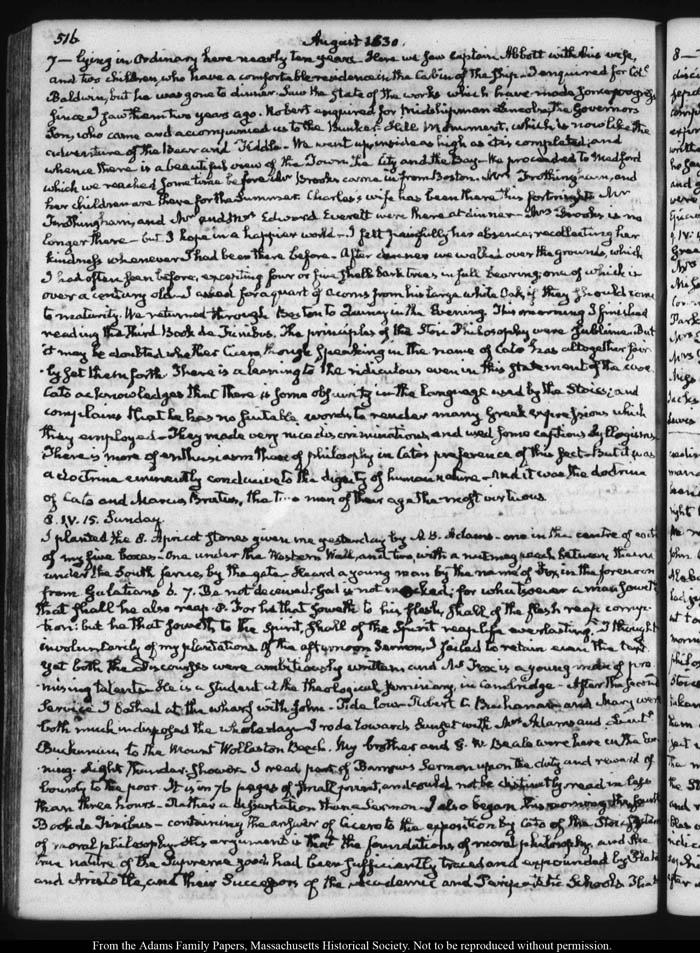 516
August 1830.
7 — lying in Ordinary here nearly ten years. Here we saw Captain Abbott with his wife,
and two children, who have a comfortable residence in the Cabin of the Ship. I enquired for Col.
Baldwin, but he was gone to dinner. Saw the State of the works which have made some progress
since I saw them two years ago. Robert enquired for Midshipman Lincoln, the Governors
Son, who came and accompanied us to the Bunker Hill Monument, which is now like the
adventure of the Bear and Fiddle. We went up inside as high as it is completed; and
whence there is a beautiful view of the Town, the City and the Bay. We proceeded to Medford
which we reached sometime before Mr Brooks came in from Boston. Mrs Frothingham, and
her children are there for the Summer. Charles's wife has been there this fortnight. Mr
Frothingham, and Mr and Mrs Edward Everett were there at dinner. Mrs Brooks is no
longer there — but I hope in a happier world. I felt painfully her absence, recollecting her
kindness whenever I had been there before. After dinner we walked over the grounds, which
I had often seen before, excepting four or five Shell bark trees in full bearing; one of which is
over a century old. I asked for a quart of acorns from his large white Oak, if they should come
to maturity. We returned through Boston to Quincy in the Evening. This morning I finished
reading the third Book de Finibus. The principles of the Stoic Philosophy were sublime. But
it may be doubted whether Cicero, though speaking in the name of Cato has altogether fair-
ly set them forth. There is a leaning to the ridiculous even in this statement of the
Cato acknowledges that there is some obscurity in the language used by the Stoics; and
complains that he has no suitable words to render many Greek expressions which
they employed. They made very nice discriminations, and used some captious Syllogisms.
There is more of enthusiasm than of philosophy in Cato's preference of this Sect. But it was
a doctrine eminently conducive to the dignity of human nature. And it was the doctrine
of Cato and Marcus Brutus, the two men of their age the most virtuous.
8. IV. 15. Sunday.
I planted the 8. Apricot stones given me yesterday by A. B. Adams — one in the centre of each
of my five boxes. One under the Western Wall, and two, with a nutmeg peach between them
under the South fence by the gate. Heard a young man by the name of Fox in the forenoon
from Galatians 6. 7. Be not deceived; God is not mocked; for whatsoever a man soweth
that shall he also reap. 8. For he that soweth to his flesh, shall of the flesh reap corrup-
tion: but he that soweth to the Spirit, shall of the Spirit reap life everlasting. I thought
involuntarily of my plantations. Of the afternoon Sermon, I failed to retain even the text
yet both the discourses were ambitiously written, and Mr Fox is a young man of pro-
mising talents. He is a Student at the theological Seminary, in Cambridge. After the second
Service I bathed at the wharf with John. Tide low. Robert C. Buchanan and Mary were
both much indisposed the whole day. I rode towards Sunset with Mrs Adams and Lieut.
Buchanan, to the Mount Wollaston Beech. My brother and G. W. Beale were here in the Eve-
ning. Light thunder-shower. I read part of Barrow's Sermon upon the duty and reward of
bounty to the poor. It is in 76 pages of small print, and could not be distinctly read in less
than three hours. Rather a dissertation than a Sermon. I also began this morning the fourth
Book de Finibus — containing the answer of Cicero to the exposition by Cato of the Stoic System
of moral philosophy. His argument is that the foundations of moral philosophy, and the
true nature of the Supreme good had been sufficiently traced and expounded by Plato
and Aristotle, and their Successors of the Academic and Peripatetic Schools. That
From the Adams Family Papers, Massachusetts Historical Society. Not to be reproduced without permission.